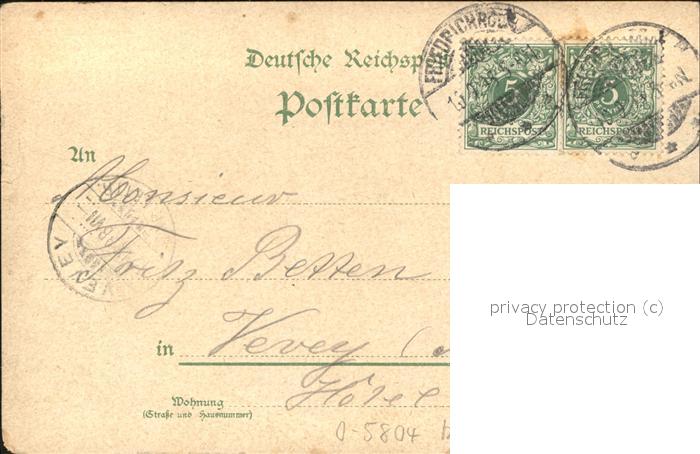 Deutsche Reichsp
Postkarte
FRIEDRICHRODA
5
REICHSPOST
5
REICHSPOST
An
Monsieur
Fritz Betten
VEVEY
privacy protection (c)
Datenschutz
in Vevey
Hôtel
Wohnung
(Straße und Hausnummer)
0-5804